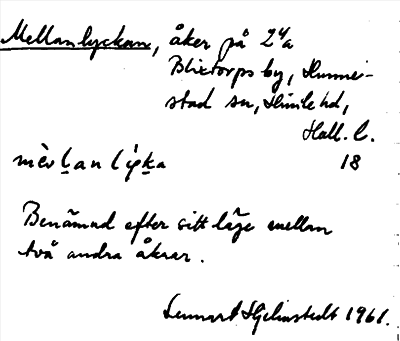 Mellanlyckan, åker på 2 4/a
Blixtorps by, Hunne-
stad sn, Himle hd,
Hall. l.
18
Benämnd efter sitt läge mellan
två andra åkrar.
Lennart Hjelmstedt 1961.